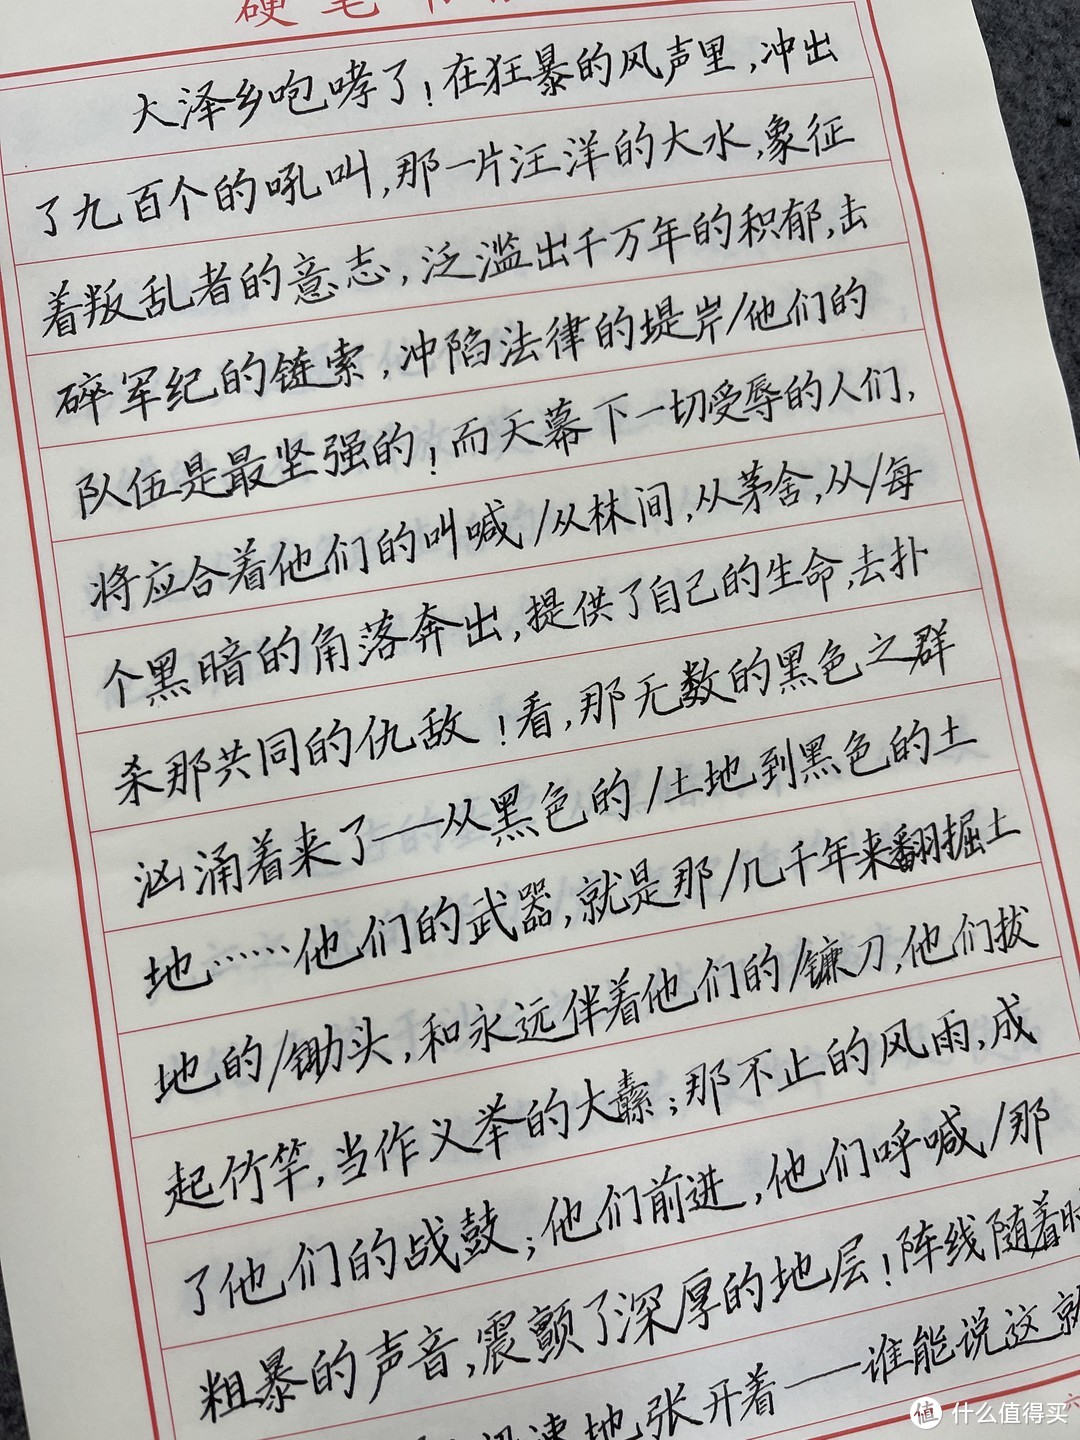 硬笔书
大泽乡咆哮了！在狂暴的风声里，冲出
了九百个的吼叫，那一片汪洋的大水，象征
着叛乱者的意志，泛滥出千万年的积郁，击
碎军纪的链索，冲陷法律的堤岸/他们的
队伍是最坚强的！而天幕下一切受辱的人们，
将应合着他们的叫喊/从林间，从茅舍，从/每
个黑暗的角落奔出，提供了自己的生命，去扑
杀那共同的仇敌！看，那无数的黑色之群
汹涌着来了——从黑色的/土地到黑色的土
地……他们的武器，就是那/几千年来翻掘土
地的/锄头，和永远伴着他们的/镰刀，他们拔
起竹竿，当作义举的大纛；那不止的风雨，成
了他们的战鼓；他们前进，他们呼喊/那
粗暴的声音，震颤了深厚的地层！阵线随着时
迅速地张开着——谁能说这就
值 什么值得买
六